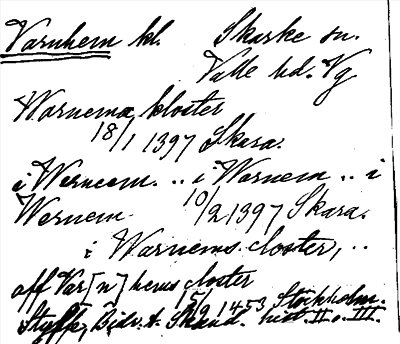 Varnhem kl. Skarke sn.
Valle hd. Vg
Warnema kloster
18/1 1397 Skara.
i Werneem. .. i Warnem .. i
Wernem. 10/2 1397 Skara.
i Warnems closter, ..
off Var[n]hems closter
15/9 1453 Stockholm.
Styffe, Bidr. t. Skand. hist. II o. III.